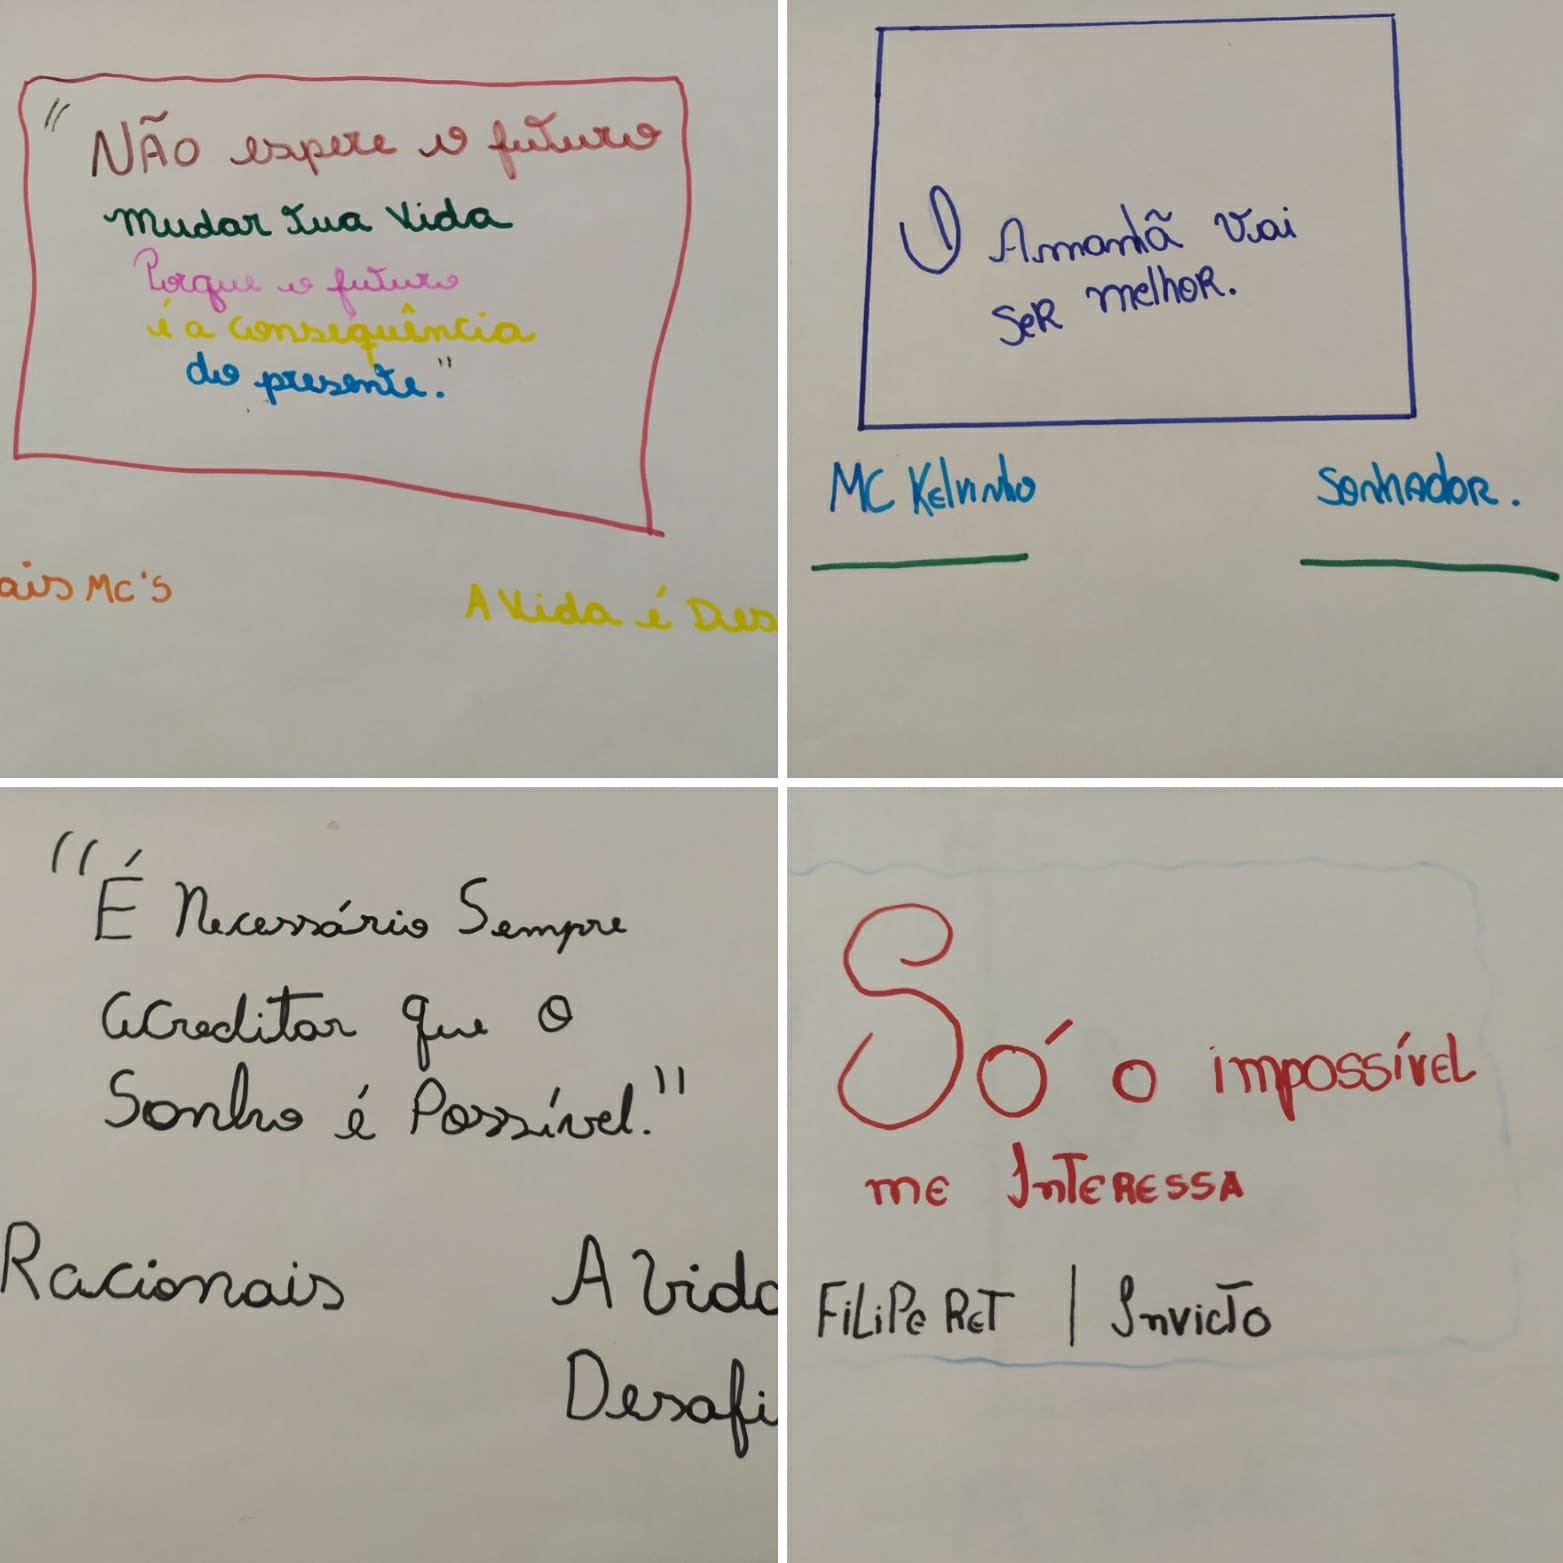 " NÃO espere o futuro
mudar tua vida
Porque o futuro
é a consequência
do presente."
ais MC'S
A vida é Des
O Amanhã vai
SER melhoR.
MC Kelvinho
SonhadoR.
"É Necessário Sempre
acreditar que o
Sonho é Possível."
Racionais
A vida
Desafi
Só o impossívEL
mE InTERESSA
FiLiPE RET | InvicTo